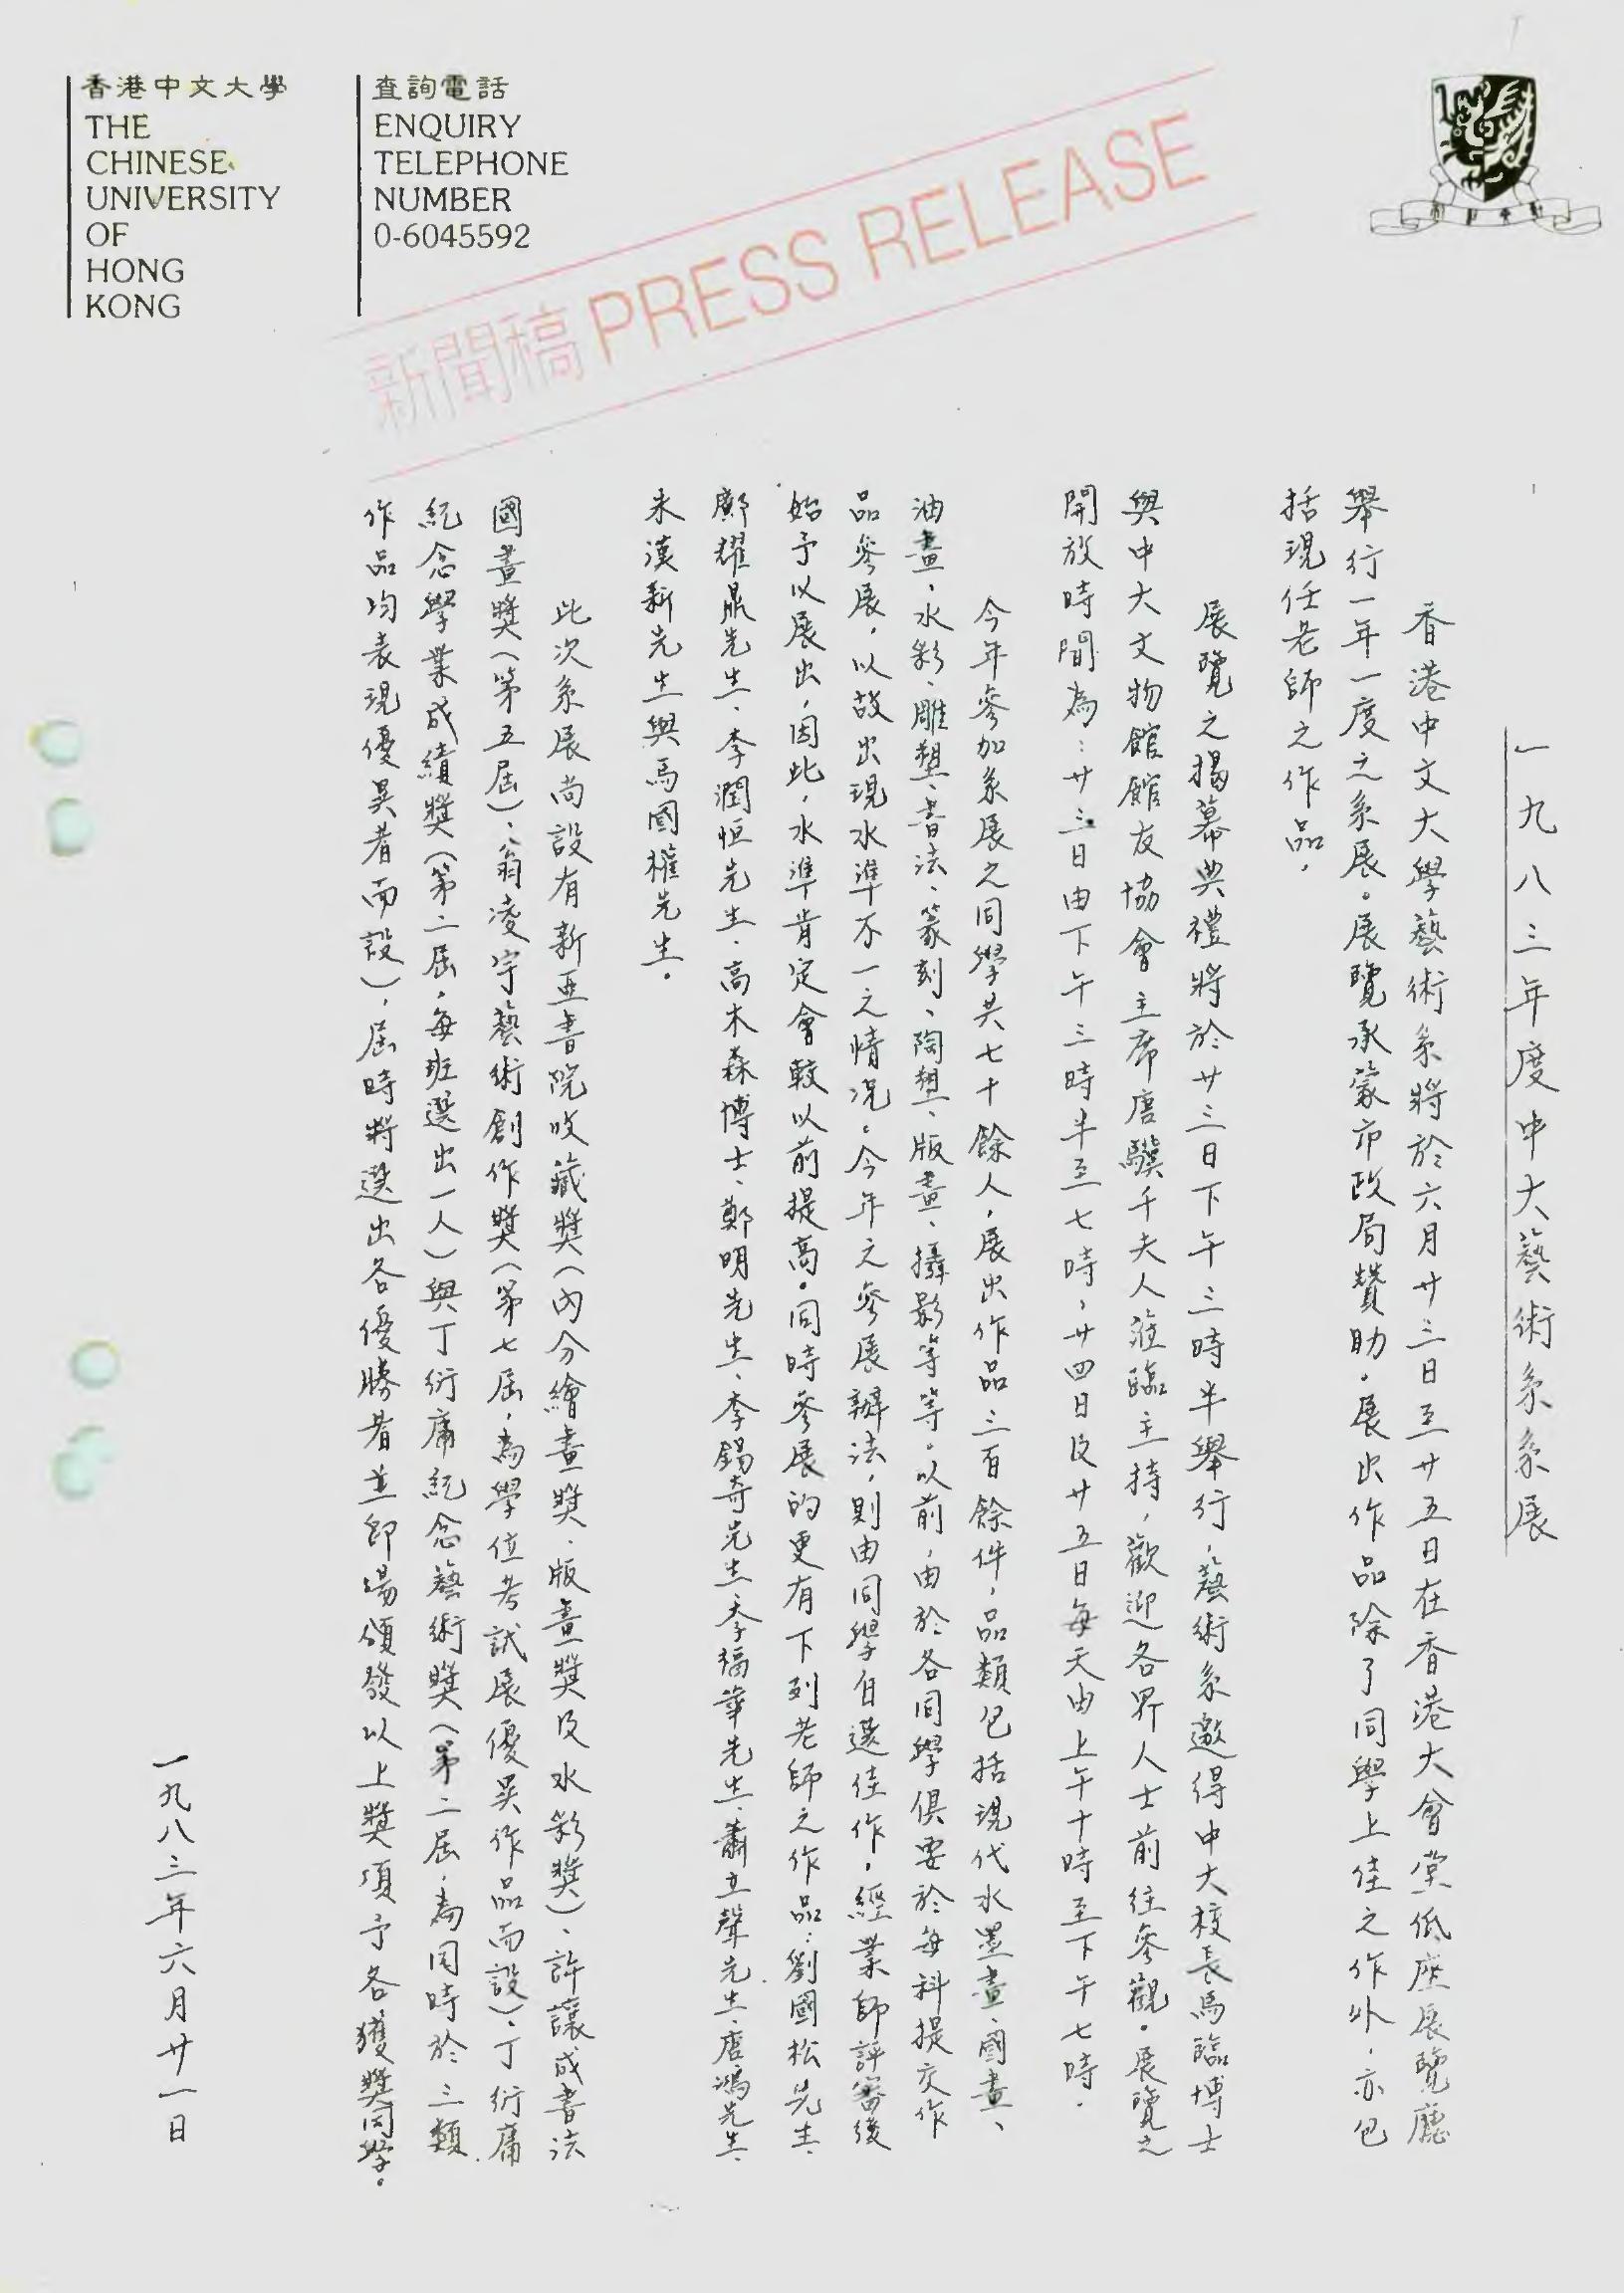 香港中文大學
THE
CHINESE
UNIVERSITY
OF
HONG
KONG
查詢電話
ENQUIRY
TELEPHONE
NUMBER
0-6045592
新聞稿 PRESS RELEASE
一九八三年度中大藝術系系展
香港中文大學藝術系將於六月廿三日至廿五日在香港大會堂低座展覽廳
舉行一年一度之系展。展覽承蒙市政局贊助。展出作品除了同學上佳之作外,亦包
括現任老師之作品。
展覽之揭幕典禮將於廿三日下午三時半舉行,藝術系邀得中大校長馬臨博士
與中大文物館館友協會主席唐驥千夫人蒞臨主持,歡迎各界人士前往參觀。展覽之
開放時間為:廿三日由下午三時半至七時,廿四日及廿五日每天由上午十時至下午七時。
今年參加系展之同學共七十餘人,展出作品三百餘件,品類包括現代水墨畫、國畫、
油畫、水彩、雕塑、書法、篆刻、陶塑、版畫、攝影等等。以前,由於各同學俱要於每科提交作
品參展,以故出現水準不一之情況。今年之參展辦法,則由同學自選佳作,經業師評審後
始予以展出,因此,水準肯定會較以前提高。同時參展的更有下列老師之作品:劉國松先生、
鄺耀鼎先生、李潤恒先生、高木森博士、鄭明先生、李錫奇先生、李福華先生、蕭立聲先生、唐鴻先生、
朱漢新先生與馬國權先生。
此次系展尚設有新亞書院收藏獎(內分繪畫獎、版畫獎及水彩獎)、許讓成書法
國畫獎(第五屆)、翁凌宇藝術創作獎(第七屆,為學位考試展優異作品而設)、丁衍庸
紀念學業成績獎(第二屆,每班選出一人)與丁衍庸紀念藝術獎(第二屆,為同時於三類
作品均表現優異者而設),屆時將選出各優勝者並即場頒發以上獎項予各獲獎同學。
一九八三年六月廿一日